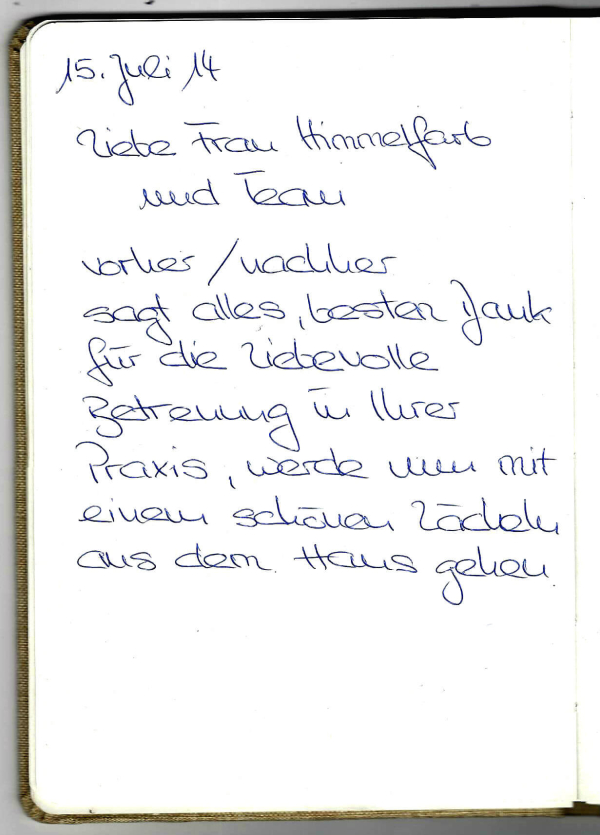 15. Juli 14
Liebe Frau Himmelfarb
und Team
vorher / nachher
sagt alles, besten Dank
für die liebevolle
Betreuung in Ihrer
Praxis, werde nun mit
einem schönen Lächeln
aus dem Haus gehen